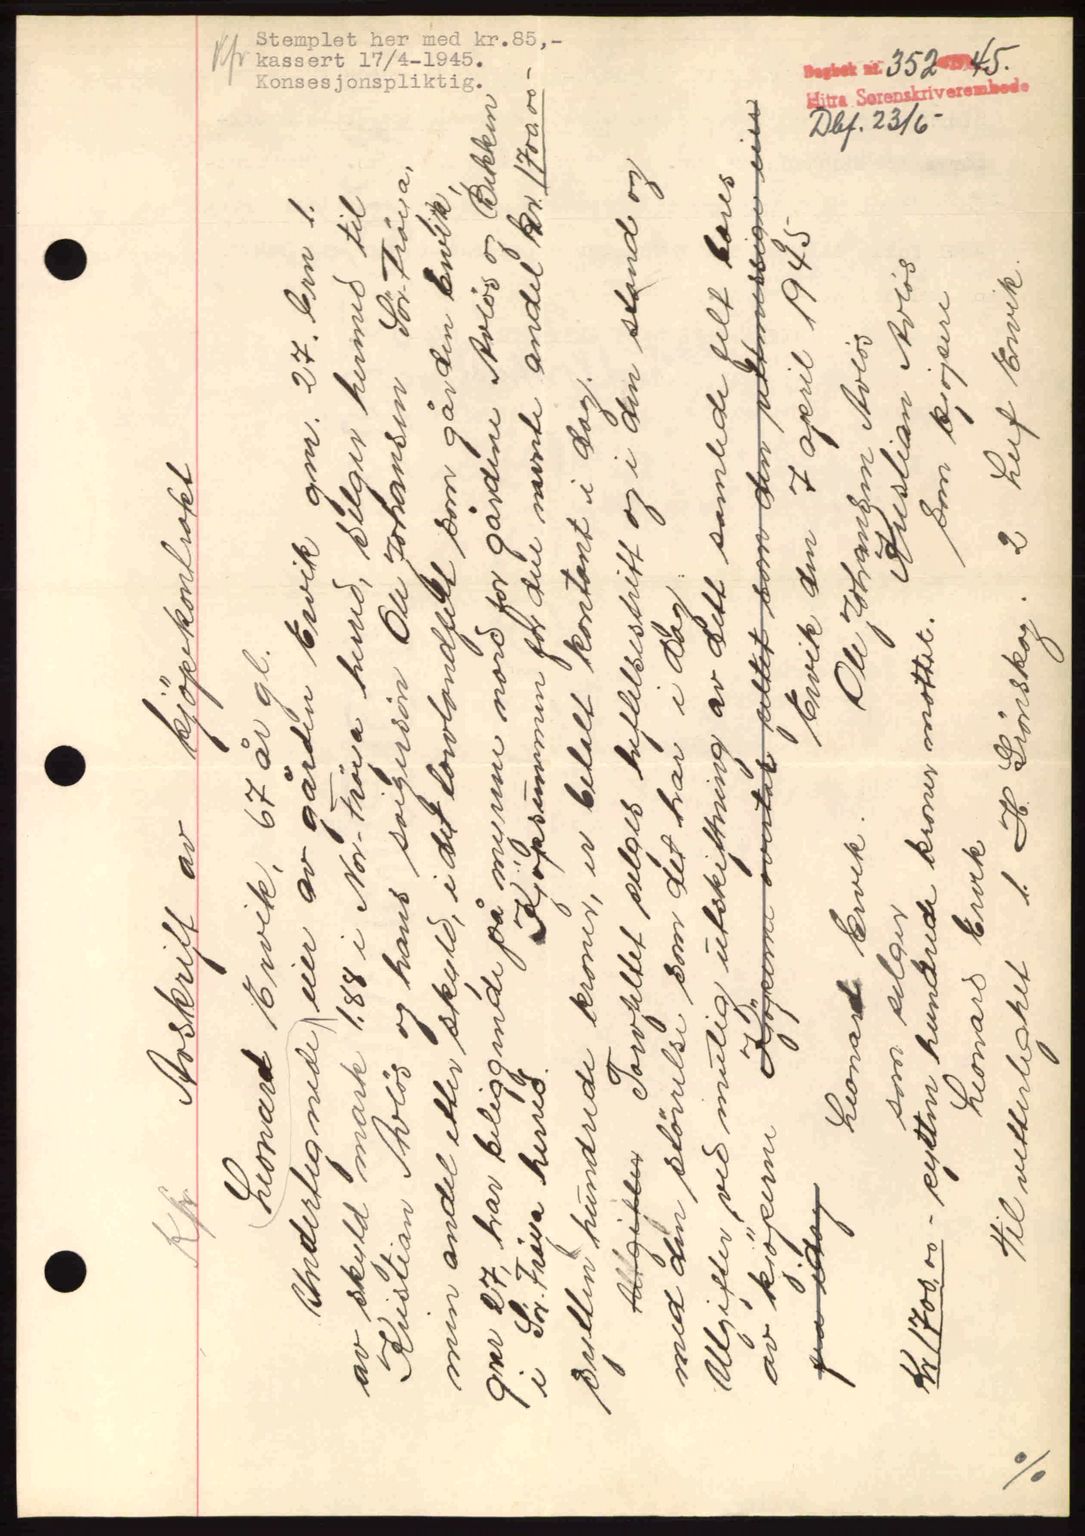 Stemplet her med kr.85,-
kassert 17/4-1945.
Konsesjonspliktig.
Kfr
Dagbok nr. 352 45.
Hitra Sorenskriverembede
Dbf. 23/6
Kfr Avskrift av kjöpekontrakt
Leonard Ervik, 67 år gl.
Undertegnede, eier av gården Ervik gnr. 27. brn 1.
av skyld mark 1.88 i Nor-Fröya herred, selger hermed til
Kristian Avlös og hans svigersön Ole Johansen Sör-Fröya,
min andel etter skyld, i det torvlandfelt som gården Ervik,
gnr 27, har beliggende på myrene nord for gårdene Avlös og Bekken
i Sör-Fröya herred. Kjöpsummen for due nevnte andel kr. 1700.00-
sytten hundrede kroner, er betalt kontant i dag.
Utgifter Torvfeltet selges heftelsesfritt og i den stand og
med den störrelse som det har i dag.
Utgifter ved mulig utskiftning av dett samlede felt bæres
av kjöperne Kjöperne overtar feltet som den
fra idag
Ervik den 7 april 1945
Leonard Ervik. Ole Johansen Avlös
som selger Kristian Avlös
som kjöpere
Kr 1700.00 - sytten hundrede kroner mottat.
Leonard Ervik
til vitterlighet 1. H Grönskag. 2 Leif Ervik.
%